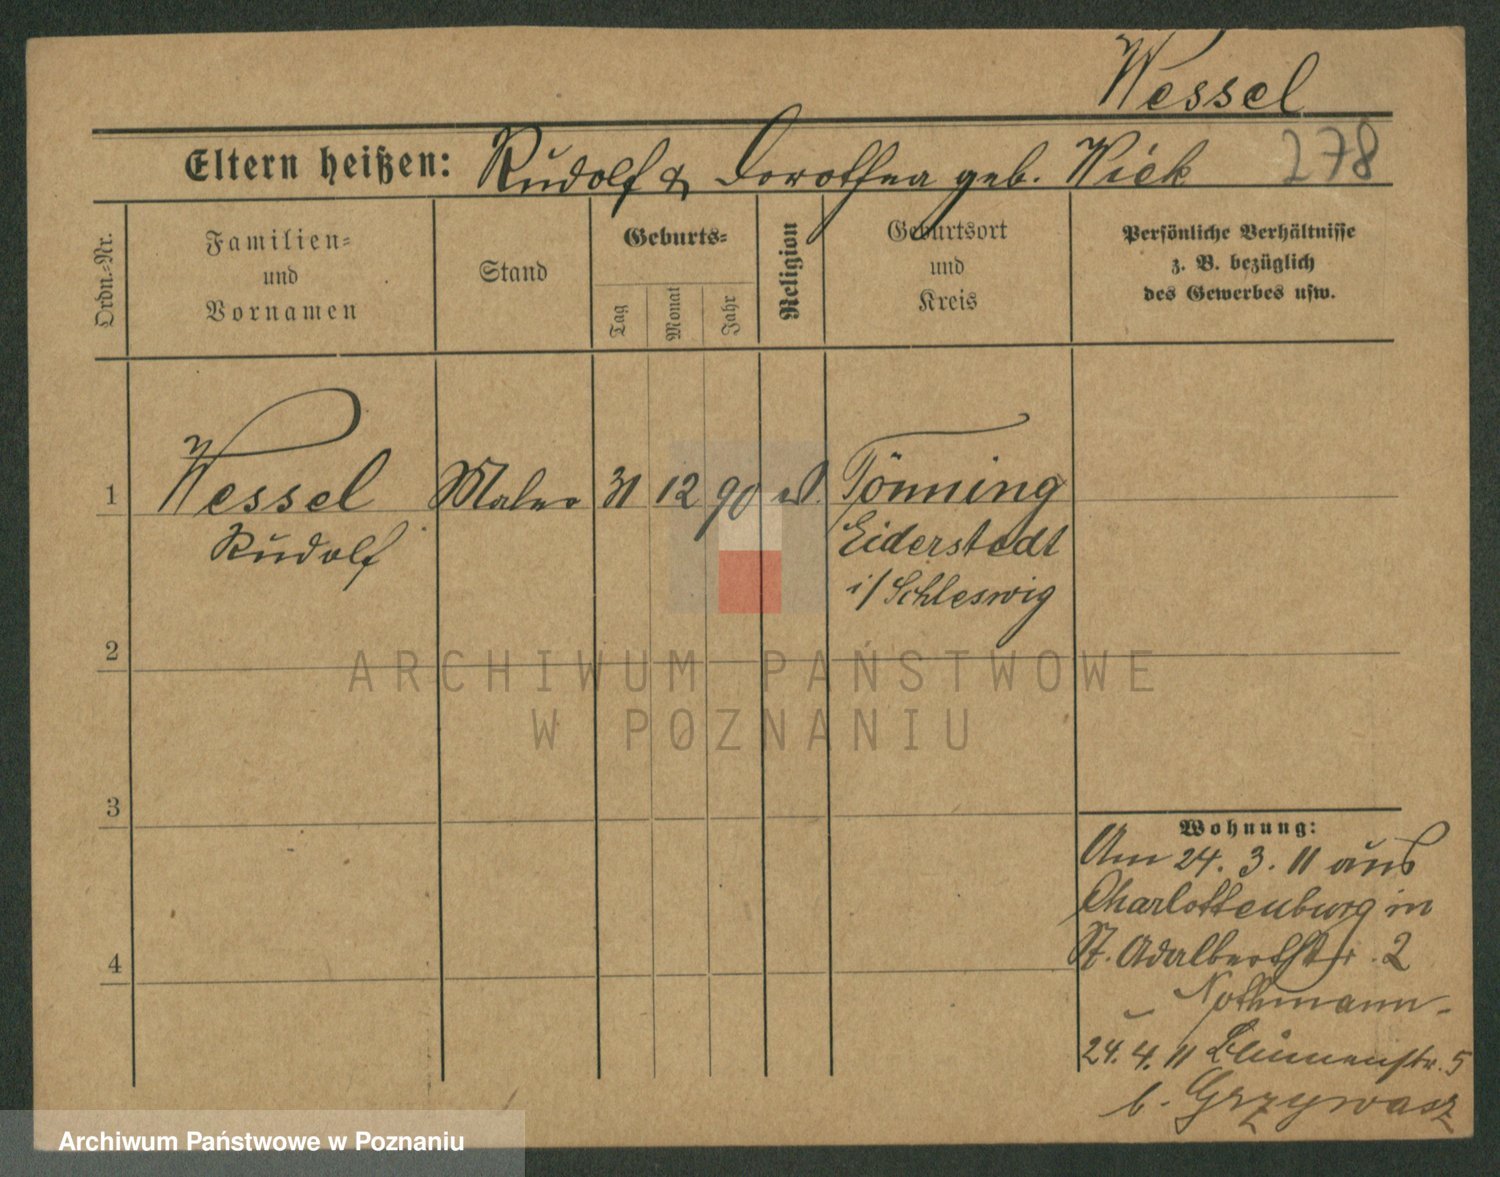 Wessel
Eltern heißen: Rudolf & Dorothea geb. Wiek 278
Ordn.-Nr.
Familien-
und
Vornamen
Stand
Geburts-
Tag
Monat
Jahr
Religion
Geburtsort
und
Kreis
Persönliche Verhältnisse
z. B. bezüglich
des Gewerbes usw.
1 Wessel Maler 31 12 90 Tönning
Rudolf Eiderstedt
i/Schleswig
2
3
4
Wohnung:
Am 24. 3. 11 aus
Charlottenburg in
St. Adalbertstr. 2
Nothmann
24. 4. 11 Blumenstr. 5
b. Grzywasz
ARCHIWUM PAŃSTWOWE
W POZNANIU
Archiwum Państwowe w Poznaniu